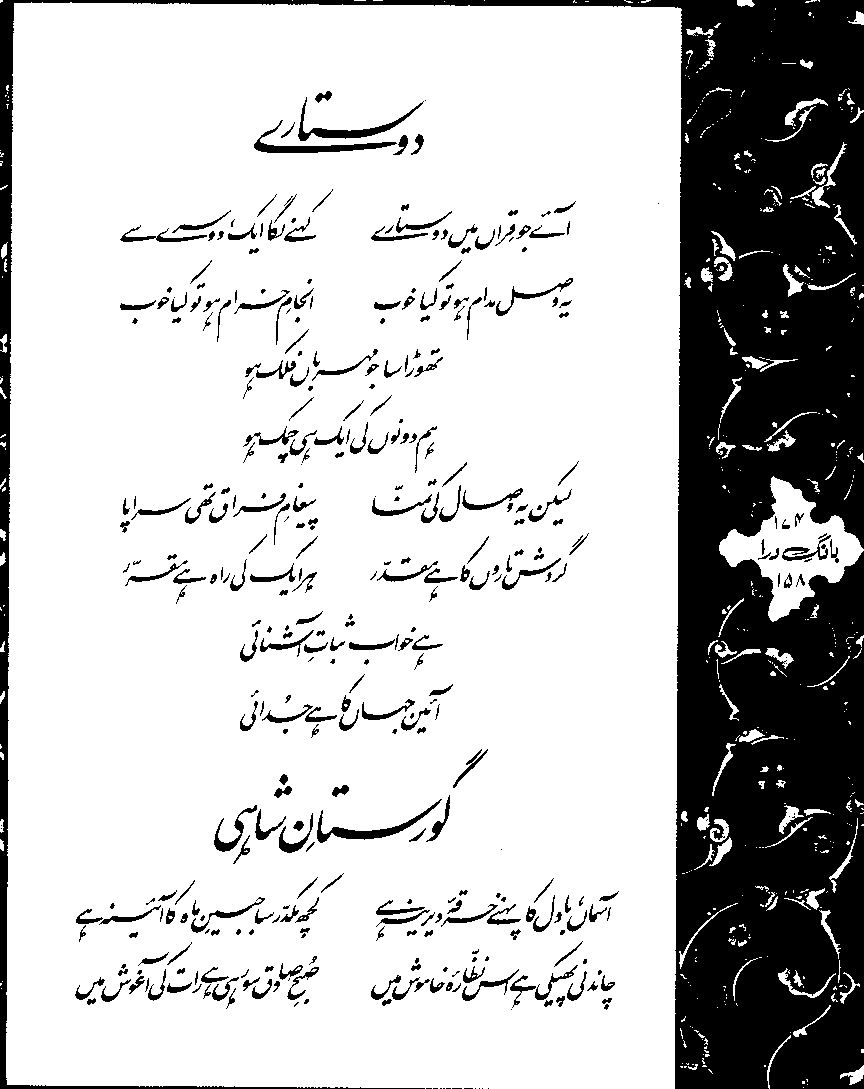 دو ستارے
آئے جو قِراں میں دو ستارے کہنے لگا ایک، دوسرے سے
یہ وصل مدام ہو تو کیا خوب انجامِ خرام ہو تو کیا خوب
تھوڑا سا جو مہرباں فلک ہو
ہم دونوں کی ایک ہی چمک ہو
لیکن یہ وصال کی تمنّا پیغامِ فراق تھی سراپا
گردش تاروں کا ہے مقدّر ہر ایک کی راہ ہے مقرّر
ہے خواب ثباتِ آشنائی
آئین جہاں کا ہے جُدائی
گورستانِ شاہی
آسماں، بادل کا پہنے خرقۂ دیرینہ ہے کچھ مکدّر سا جبینِ ماہ کا آئینہ ہے
چاندنی پھیکی ہے اس نظّارۂ خاموش میں صُبحِ صادق سو رہی ہے رات کی آغوش میں
۱۷۴
بانگِ درا
۱۵۸